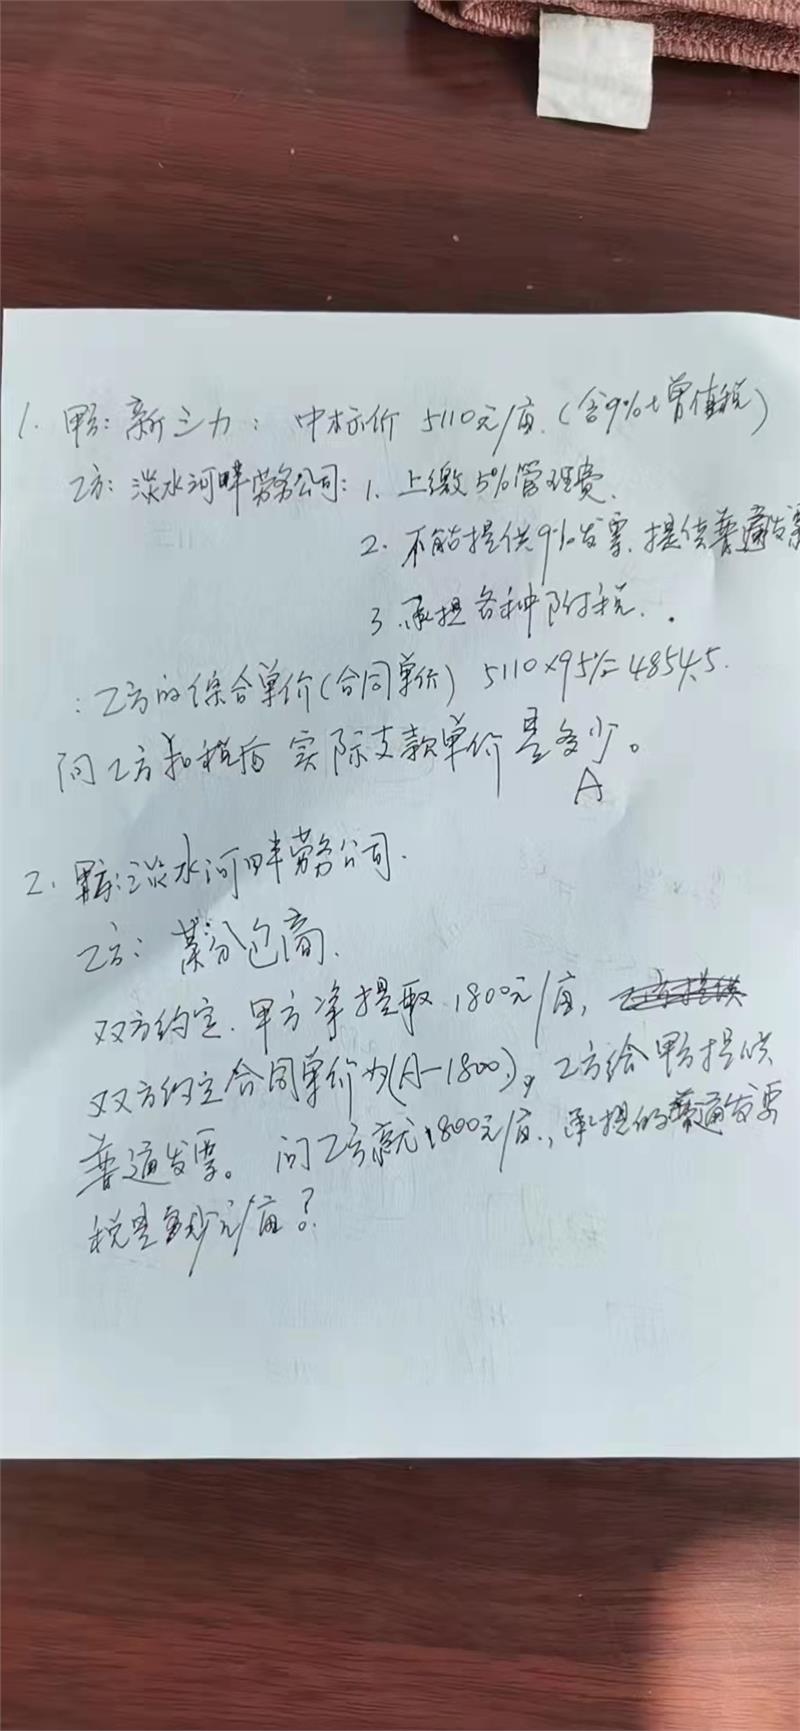 1. 甲方: 新三力: 中标价 5110元/亩.(含9%增值税)
乙方: 淡水河畔劳务公司: 1. 上缴5%管理费.
2. 不能提供9%发票. 提供普通发票
3. 承担各种附税.
: 乙方的综合单价(合同单价) 5110×95%=4854.5.
问乙方扣税后 实际支款单价是多少。
A
2. 甲方: 淡水河畔劳务公司.
乙方: 某分包商.
双方约定. 甲方净提取 1800元/亩,
双方约定合同单价为(A-1800), 乙方给甲方提供
普通发票。 问乙方就1800元/亩., 承担的普通发票
税是多少元/亩?